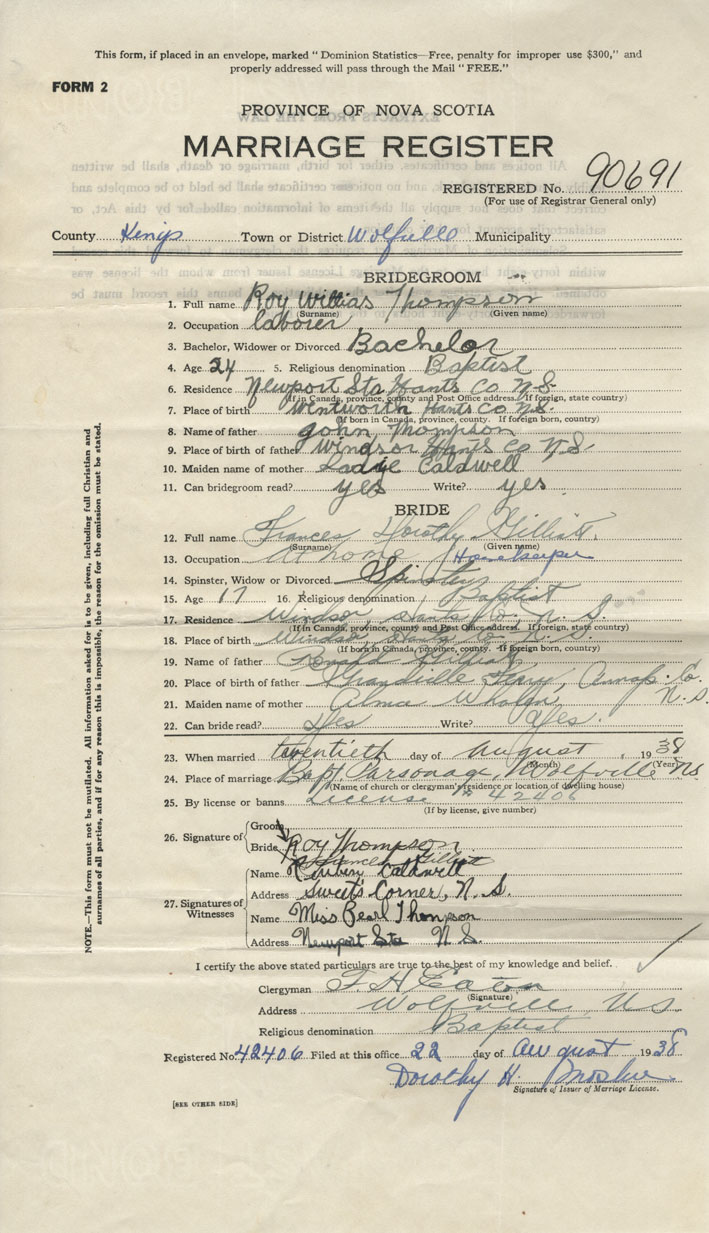 This form, if placed in an envelope, marked "Dominion Statistics—Free, penalty for improper use $300," and
properly addressed will pass through the Mail "FREE."
FORM 2
PROVINCE OF NOVA SCOTIA
MARRIAGE REGISTER
REGISTERED No. 90691
(For use of Registrar General only)
County Kings Town or District Wolfville Municipality
BRIDEGROOM
1. Full name Roy Willias Thompson
(Surname) (Given name)
2. Occupation laborer
3. Bachelor, Widower or Divorced Bachelor
4. Age 24 5. Religious denomination Baptist
6. Residence Newport Sta Hants Co N.S.
(If in Canada, province, county and Post Office address. If foreign, state country)
7. Place of birth Wentworth Hants Co N.S.
(If born in Canada, province, county. If foreign born, country)
8. Name of father John Thompson
9. Place of birth of father Windsor Hants Co N S
10. Maiden name of mother Sadie Caldwell
11. Can bridegroom read? yes Write? yes
BRIDE
12. Full name Frances Dorothy Gilliatt.
(Surname) (Given name)
13. Occupation At home Housekeeper
14. Spinster, Widow or Divorced Spinster
15. Age 17 16. Religious denomination Baptist
17. Residence Windsor, Hants Co. N. S.
(If in Canada, province, county and Post Office address. If foreign, state country)
18. Place of birth Windsor, Hants Co. N. S.
(If born in Canada, province, county. If foreign born, country)
19. Name of father Gilliatt
20. Place of birth of father Granville Ferry, Annap. Co.
N. S.
21. Maiden name of mother Alma Whalen
22. Can bride read? Yes Write? Yes.
23. When married twentieth day of August, 1938
(Month) (Year)
24. Place of marriage Bapt. Parsonage, Wolfville NS.
(Name of church or clergyman's residence or location of dwelling house)
25. By license or banns License # 42406
(If by license, give number)
26. Signature of Groom
Bride Roy Thompson
Frances Gilliatt
27. Signatures of Witnesses
Name Caldwell
Address Sweet's Corner, N. S.
Name Miss Pearl Thompson
Address Newport Sta N.S.
I certify the above stated particulars are true to the best of my knowledge and belief.
Clergyman F. H. Eaton
(Signature)
Address Wolfville, NS
Religious denomination Baptist
Registered No. 42406 Filed at this office 22 day of August 1938
Dorothy H.
Signature of Issuer of Marriage License.
[SEE OTHER SIDE]
NOTE.—This form must not be mutilated. All information asked for is to be given, including full Christian and
surnames of all parties, and if for any reason this is impossible, the reason for the omission must be stated.